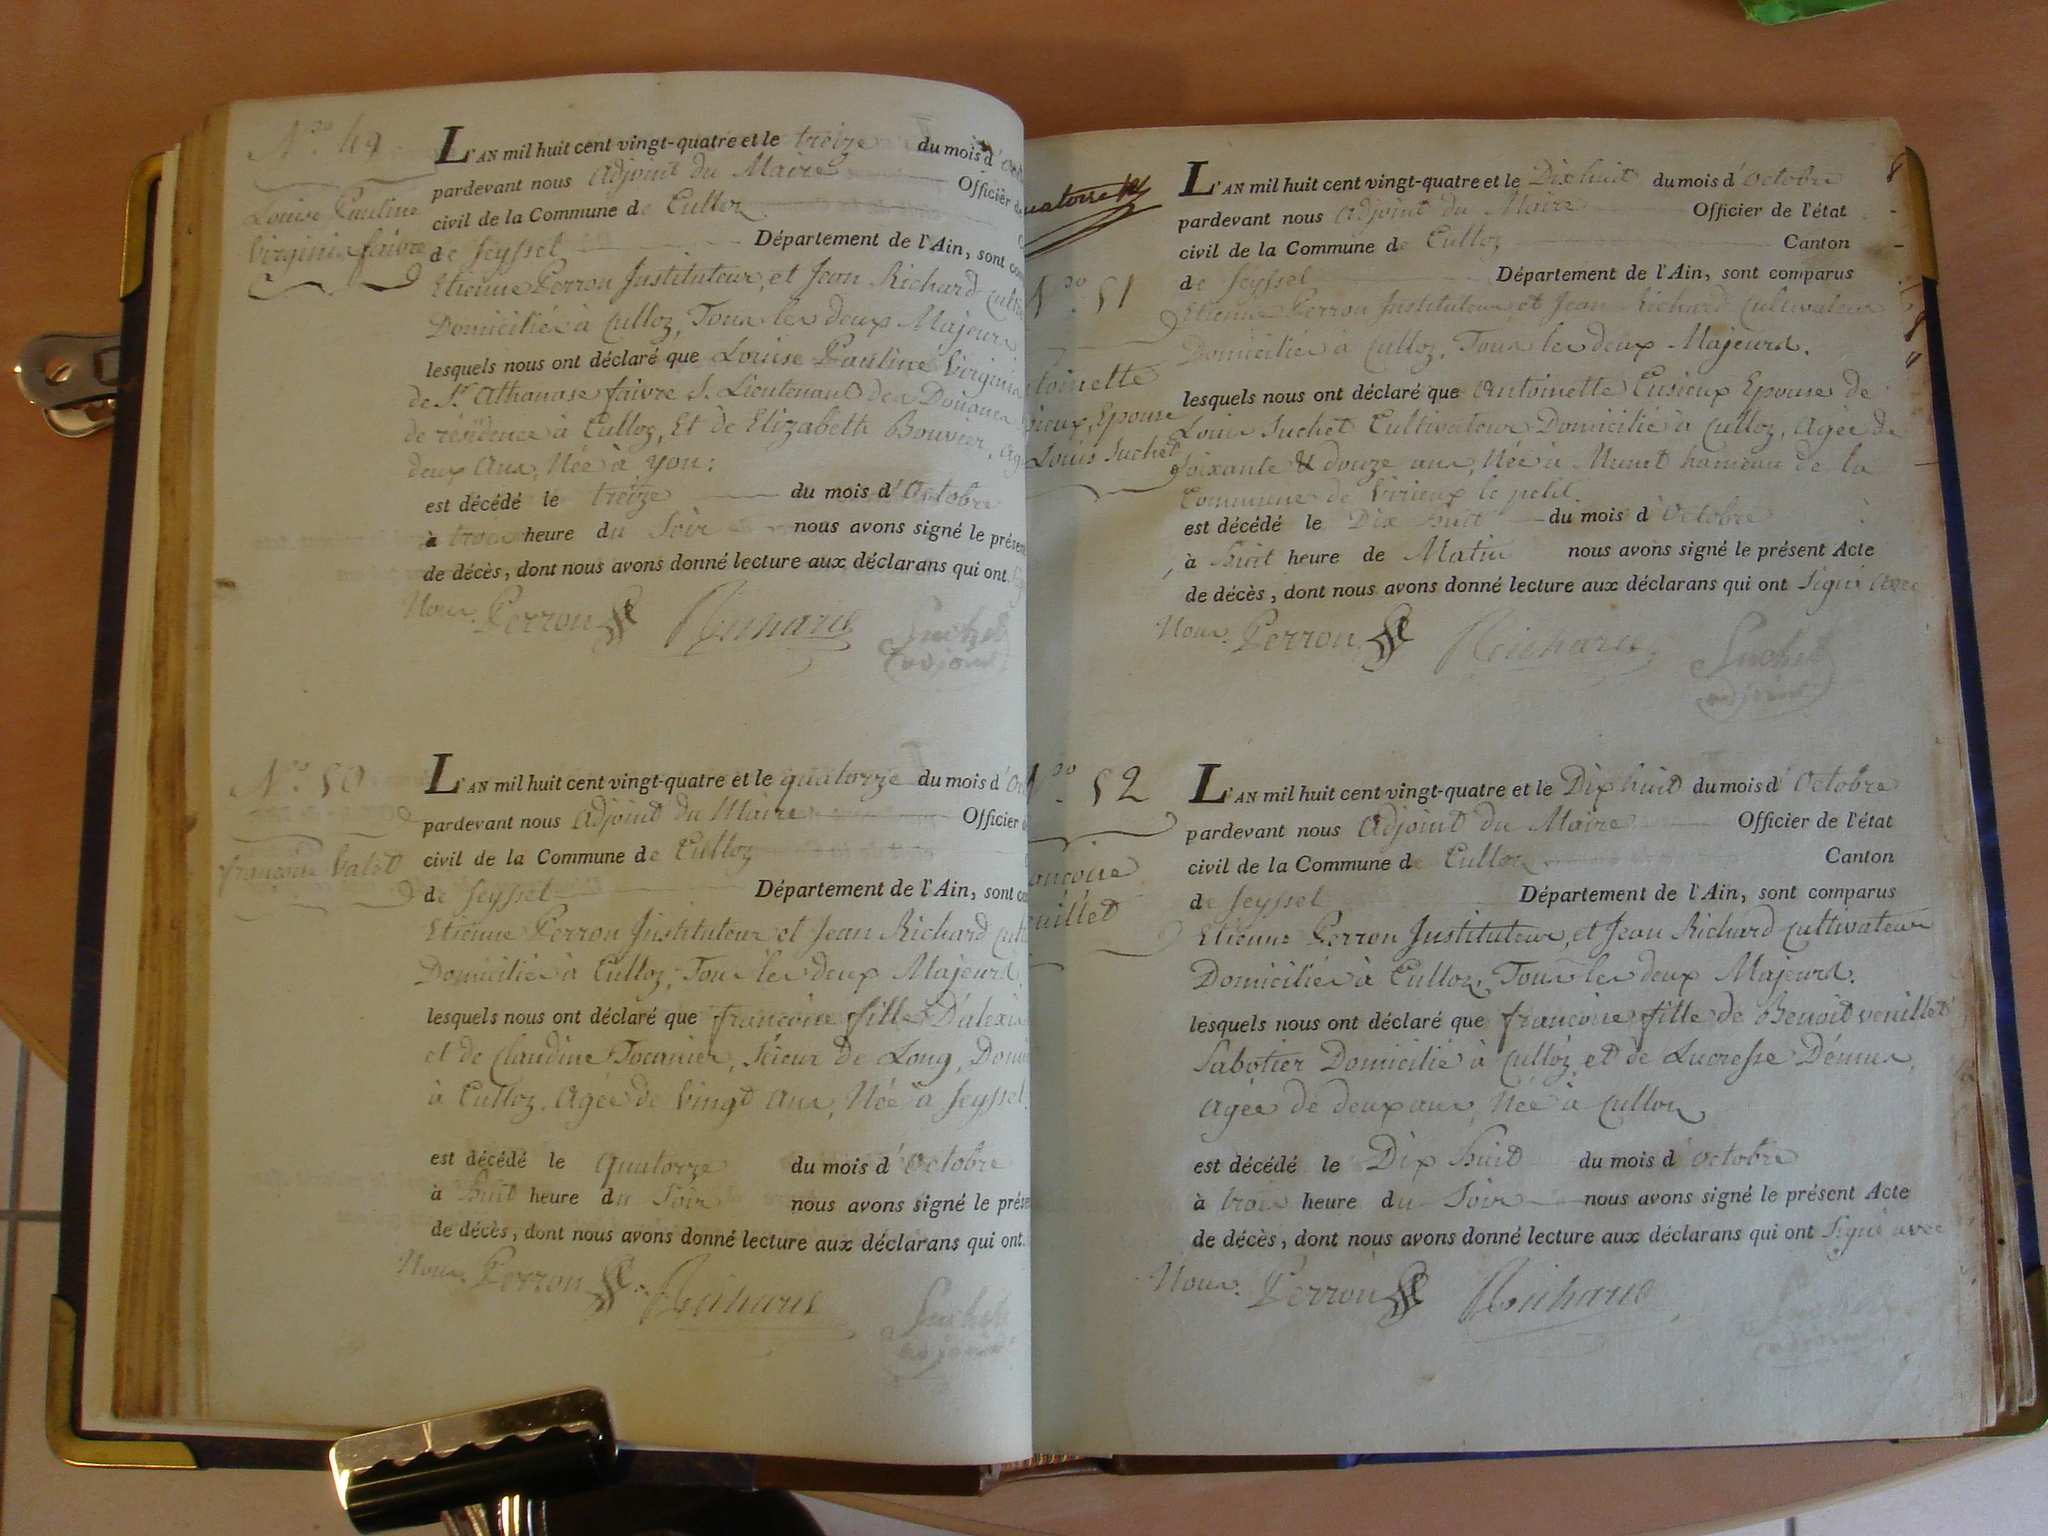 N.ro 49
Louise Pauline
Virginie faivre
L'AN mil huit cent vingt-quatre et le treize du mois d'
pardevant nous Adjoint du Maire Officier de
civil de la Commune de Culloz
de Seyssel Département de l'Ain, sont
Etienne Perron Instituteur, et Jean Richard
Domiciliés à Culloz, Tous les deux Majeurs
lesquels nous ont déclaré que Louise Pauline Virginie
de Sr. Athanase faivre S. Lieutenant des Douanes
de résidence à Culloz, Et de Elizabeth Bouvier,
deux Ans, Née à yon:
est décédé le treize du mois d'Octobre
à trois heure du Soir nous avons signé le présen
de décès, dont nous avons donné lecture aux déclarans qui ont
Nous. Perron Richard Suchet
adjoint
N.ro 50
françoise Valet
L'AN mil huit cent vingt-quatre et le quatorze du mois d'
pardevant nous Adjoint du Maire Officier
civil de la Commune de Culloz
de Seyssel Département de l'Ain, sont
Etienne Perron Instituteur et Jean Richard
Domiciliés à Culloz, Tous les deux Majeurs.
lesquels nous ont déclaré que françoise fille D'alexis
et de Claudine Tournier, Scieur de Long,
à Culloz. Agée de Vingt Ans, Née à Seyssel.
est décédé le quatorze du mois d'Octobre
à huit heure du Soir nous avons signé le prése
de décès, dont nous avons donné lecture aux déclarans qui ont
Nous. Perron Richard Suchet
adjoint
uatorze
N.ro 51
toinette
sieux, Epouse
Louis Suchet
L'AN mil huit cent vingt-quatre et le Dix huit du mois d'Octobre
pardevant nous Adjoint du Maire Officier de l'état
civil de la Commune de Culloz Canton
de Seyssel Département de l'Ain, sont comparus
Etienne Perron Instituteur, et Jean Richard Cultivateur
Domiciliés à Culloz, Tous les deux Majeurs.
lesquels nous ont déclaré que Antoinette Cusieux Epouse de
Louis Suchet Cultivateur Domicilié à Culloz, Agée de
Soixante & douze ans, Née à Munet hameau de la
Commune de Virieux le petit.
est décédé le Dix huit du mois d'Octobre
à huit heure de Matin nous avons signé le présent Acte
de décès, dont nous avons donné lecture aux déclarans qui ont Signé avec
Nous. Perron Richard Suchet
adjoint
N.ro 52
ançoise
euillet
L'AN mil huit cent vingt-quatre et le Dix huit du mois d'Octobre
pardevant nous Adjoint du Maire Officier de l'état
civil de la Commune de Culloz Canton
de Seyssel Département de l'Ain, sont comparus
Etienne Perron Instituteur, et Jean Richard Cultivateur
Domiciliés à Culloz, Tous les deux Majeurs.
lesquels nous ont déclaré que françoise fille de Benoit veuillet
Sabotier Domicilié à Culloz, et de Lucresse Démus,
Agée de deux ans, Née à Culloz
est décédé le Dix huit du mois d'Octobre
à trois heure du Soir nous avons signé le présent Acte
de décès, dont nous avons donné lecture aux déclarans qui ont Signé avec
Nous. Perron Richard